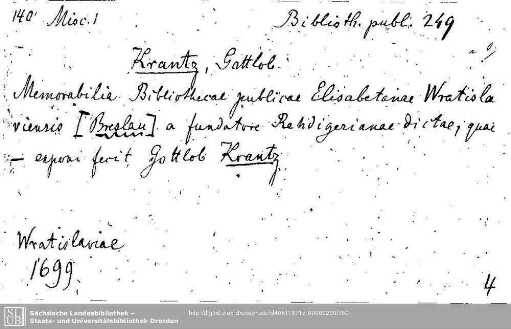 140 Misc. 1 Biblioth. publ. 249
Krantz, Gottlob.
Memorabilia Bibliothecae publicae Elisabetanae Wratisla
viensis [Breslau] a fundatore Rehdigerianae dictae, quae
– exponi fecit Gottlob Krantz
Wratislaviae
1699.
4
SLUB
Sächsische Landesbibliothek –
Staats- und Universitätsbibliothek Dresden